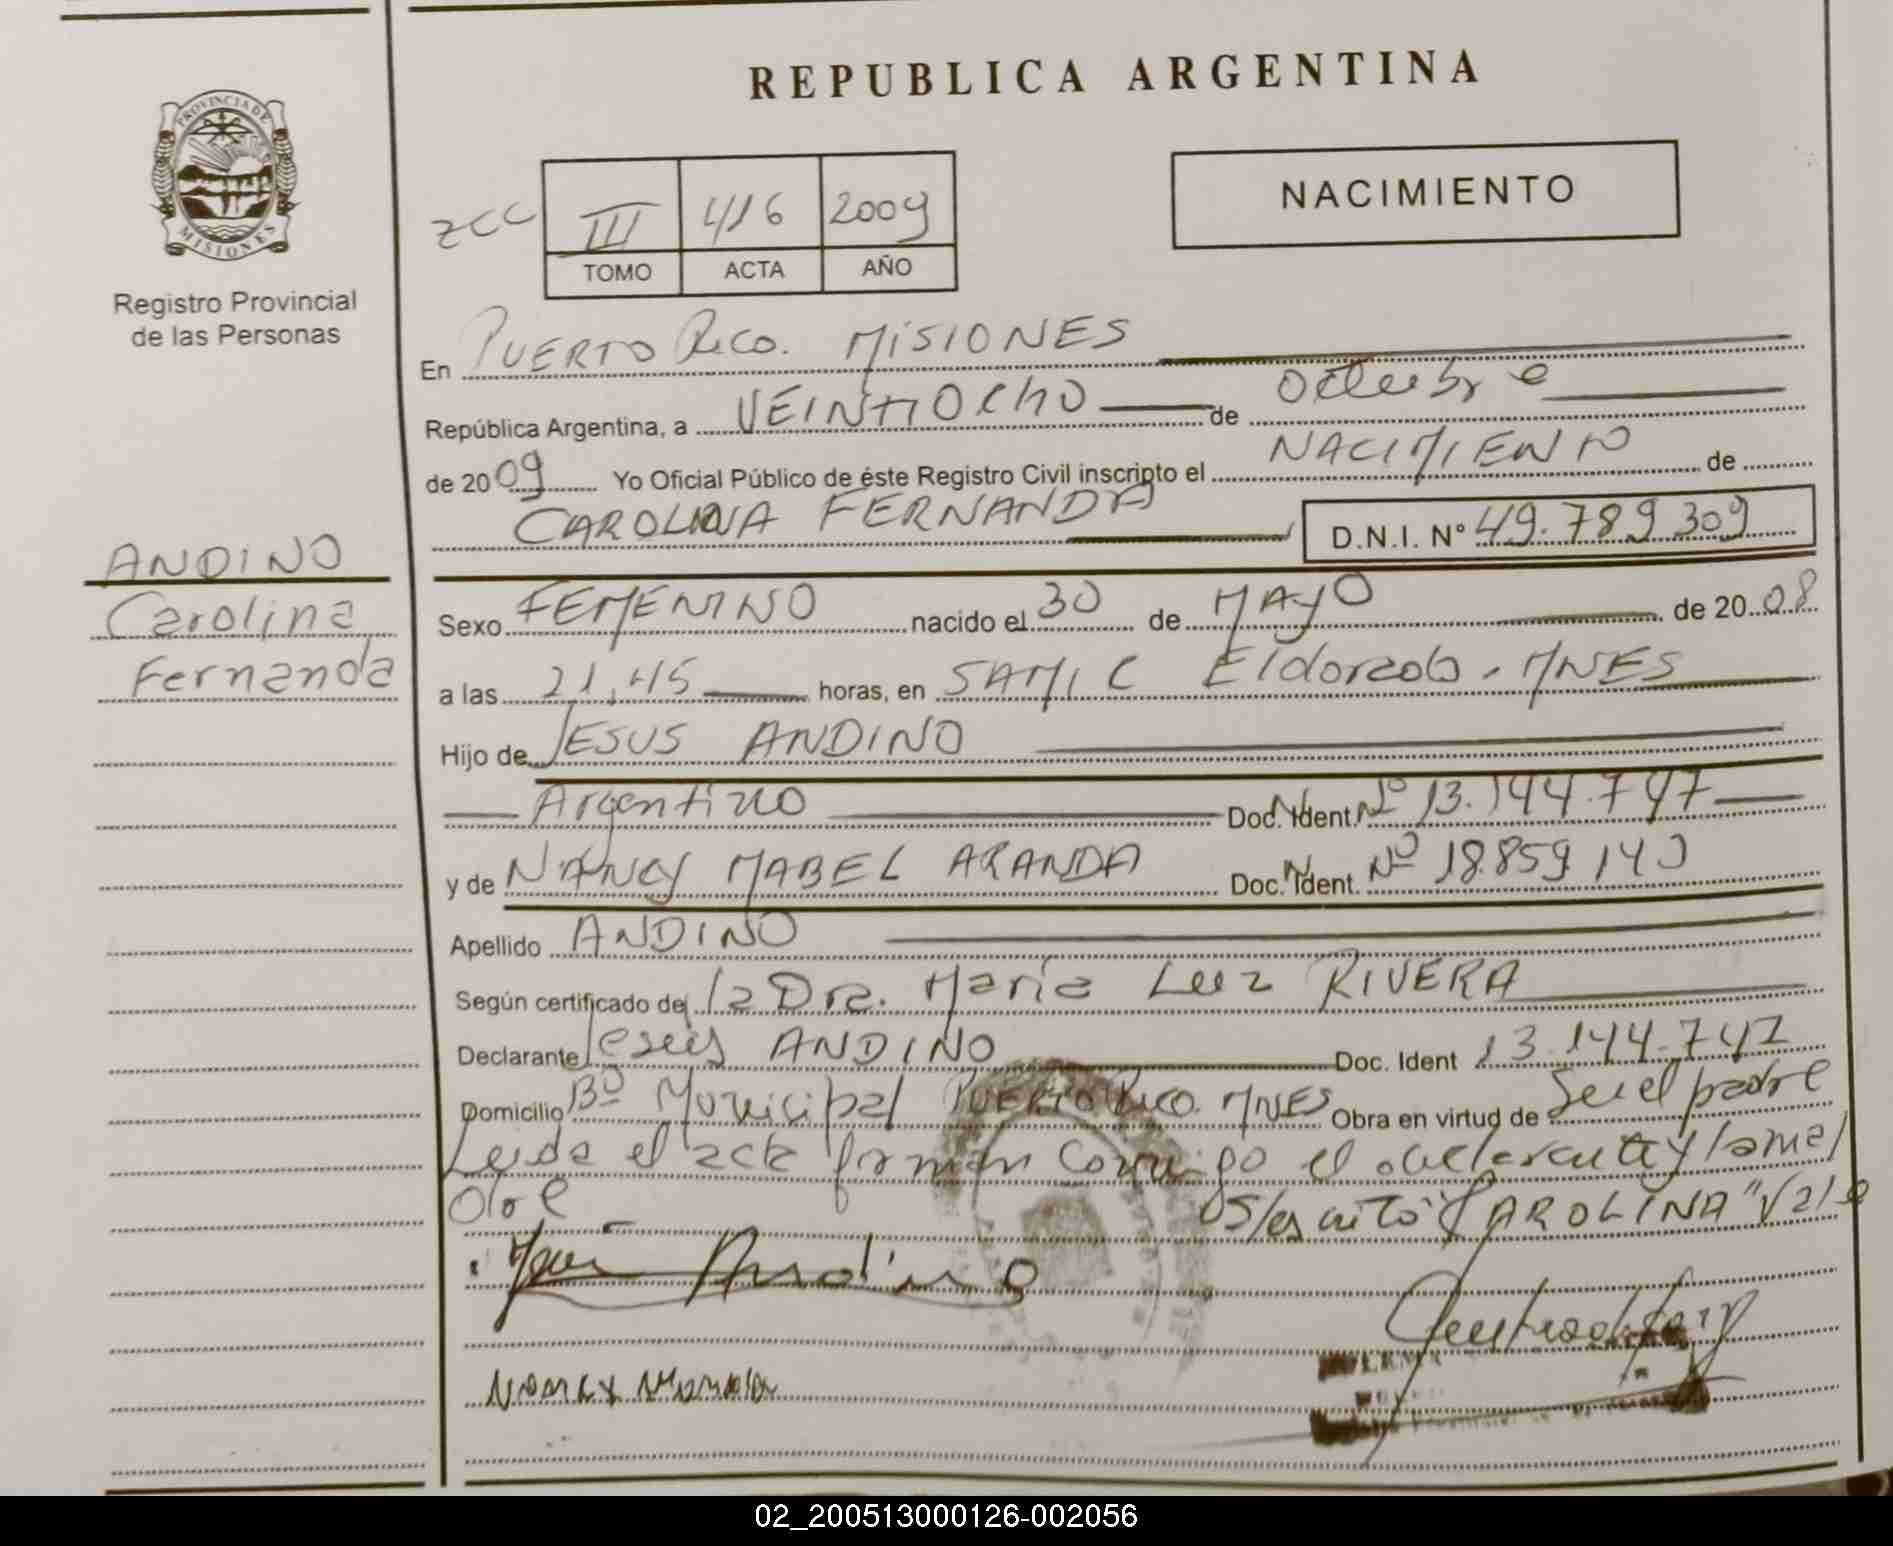 REPUBLICA ARGENTINA
PROVINCIA DE MISIONES
Registro Provincial
de las Personas
NACIMIENTO
zcc III 416 2009
TOMO ACTA AÑO
En PUERTO Rico. MISIONES
República Argentina, a VEINTIOCHO de octubre
de 2009 Yo Oficial Público de éste Registro Civil inscripto el NACIMIENTO de
CAROLINA FERNANDA D.N.I. Nº 49.789309
ANDINO
Carolina
Fernanda
Sexo FEMENINO nacido el 30 de MAYO de 2008
a las 21,45 horas, en SAMIC Eldorado. MNES
Hijo de JESUS ANDINO
Argentino Doc. Ident. Nº 13.144.747
y de NANCY MABEL ARANDA Doc. Ident. Nº 18.859 140
Apellido ANDINO
Según certificado de la Dra. María Luz RIVERA
Declarante Jesus ANDINO Doc. Ident 13.144.747
Domicilio Bº Municipal PUERTO Rico. MNES Obra en virtud de Ser el padre
Leida el acta firman conmigo el declarante y la ma
dre S/escrito "CAROLINA" Vale
Andino
02_200513000126-002056